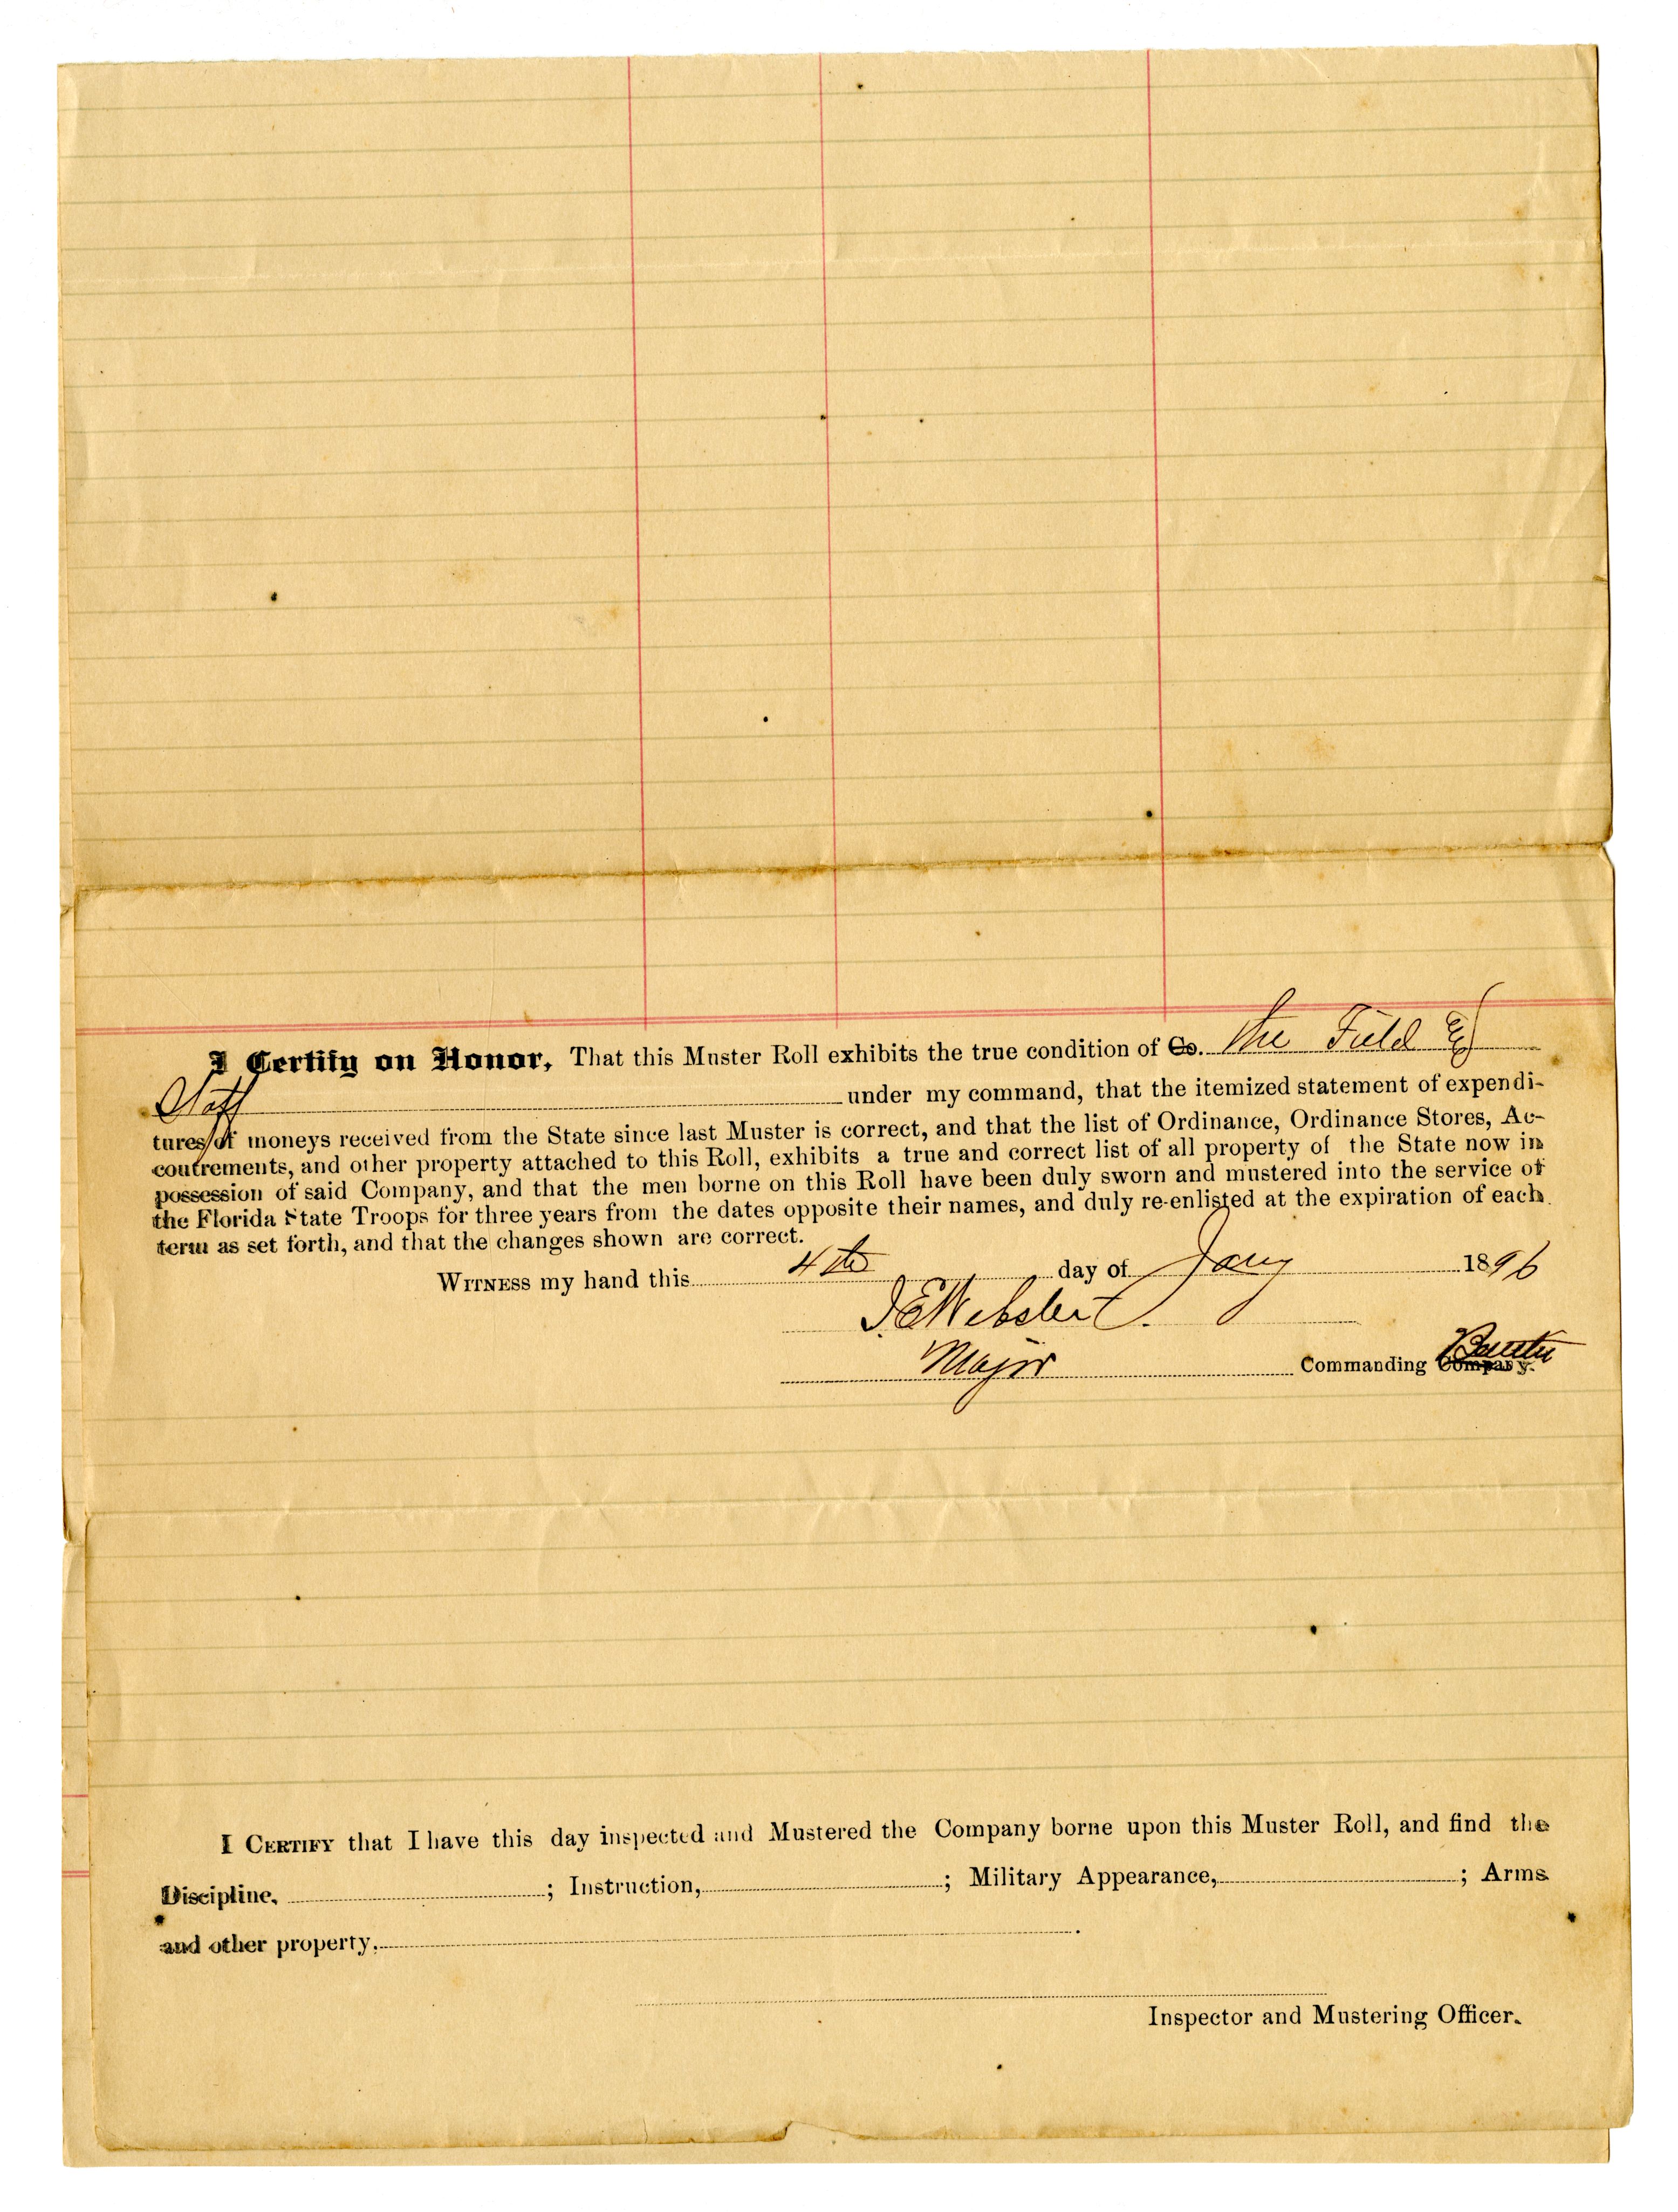 I Certify on Honor, That this Muster Roll exhibits the true condition of Co. the Field &
Staff under my command, that the itemized statement of expendi-
tures of moneys received from the State since last Muster is correct, and that the list of Ordinance, Ordinance Stores, Ac-
coutrements, and other property attached to this Roll, exhibits a true and correct list of all property of the State now in
possession of said Company, and that the men borne on this Roll have been duly sworn and mustered into the service of
the Florida State Troops for three years from the dates opposite their names, and duly re-enlisted at the expiration of each
term as set forth, and that the changes shown are correct.
WITNESS my hand this 4th day of Jany 1896
Webster
Major Commanding Company.
I CERTIFY that I have this day inspected and Mustered the Company borne upon this Muster Roll, and find the
Discipline, ; Instruction, ; Military Appearance, ; Arms
and other property, .
Inspector and Mustering Officer.